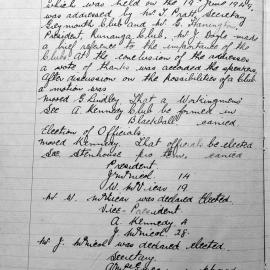 which was held on the 19th June 1947,
was addressed by Mr T. Pratt, Secretary
Greymouth Club and Mr E.
President, Runanga Club. Mr J. Doyle made
a brief reference to the importance of the
Clubs. At the conclusion of the addresses
a vote of thanks was accorded the speakers.
After discussion on the possibilities of a Club
a motion was
Moved G. Lindley. That a Workingmens
Sec A. Kennedy Club be formed in
Blackball carried
Election of Officials
Moved Kennedy. That officials be elected
Sec Stenhouse pro tem, carried
President.
J McNicol 14
W. McVicas 19
Mr W. McVicas was declared Elected.
Vice-President
A Kennedy 4
J McNicol 28.
Mr J. McNicol was declared elected.
Secretary.